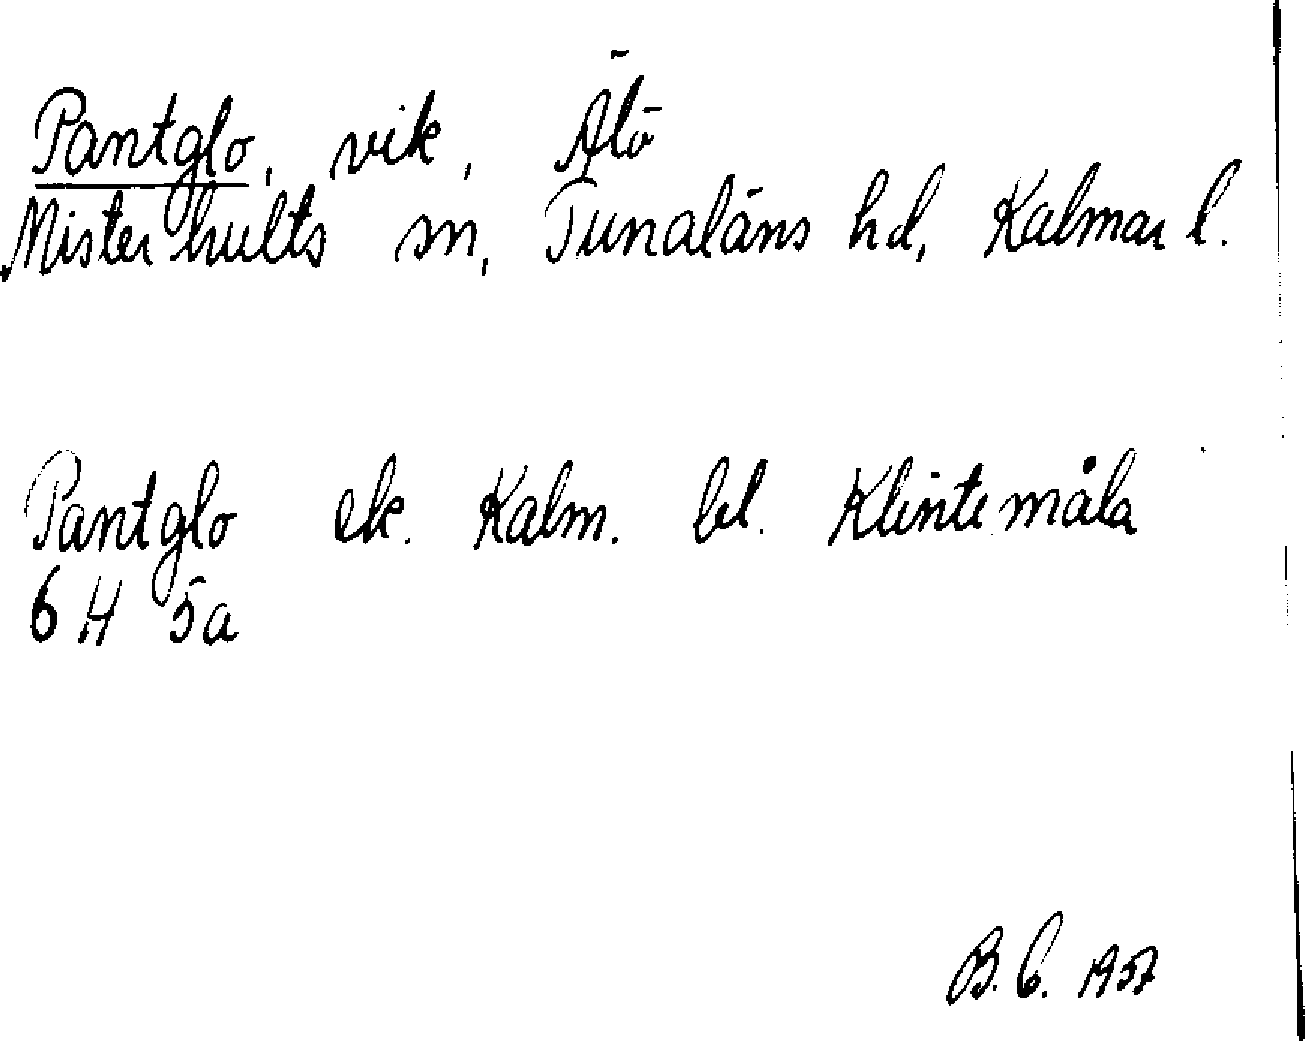 Pantglo, vik, Älö
Misterhults sn, Tunaläns hd, Kalmar l.
Pantglo ek. Kalm. bl. Klintemåla
6 H 5a
B. G. 1957